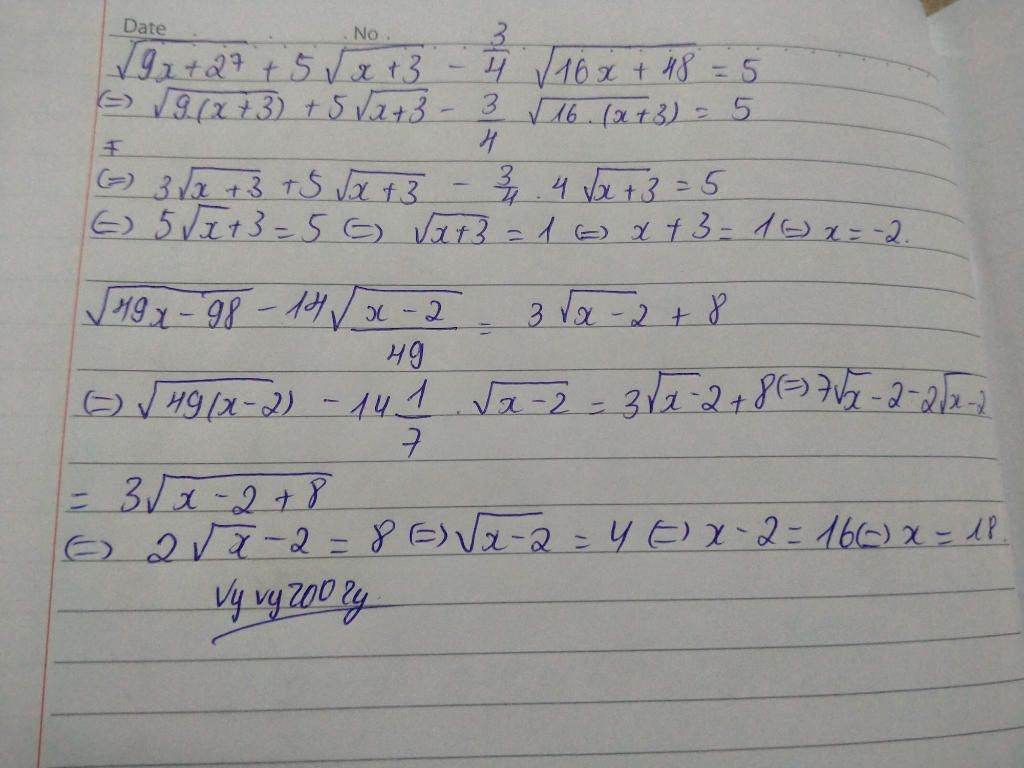 Date No.
√(9x+27) + 5√(x+3) - 3/4 √(16x+48) = 5
(=) √(9(x+3)) + 5√(x+3) - 3/4 √(16.(x+3)) = 5
(=) 3√(x+3) + 5√(x+3) - 3/4 . 4√(x+3) = 5
(=) 5√x+3 = 5 (=) √(x+3) = 1 (=) x+3 = 1 (=) x = -2.
√(49x-98) - 14√((x-2)/49) = 3√(x-2) + 8
(=) √(49(x-2)) - 14 1/7 . √(x-2) = 3√x-2 + 8 (=) 7√x-2 - 2√x-2
= 3√(x-2+8)
(=) 2√x-2 = 8 (=) √(x-2) = 4 (=) x-2 = 16 (=) x = 18.